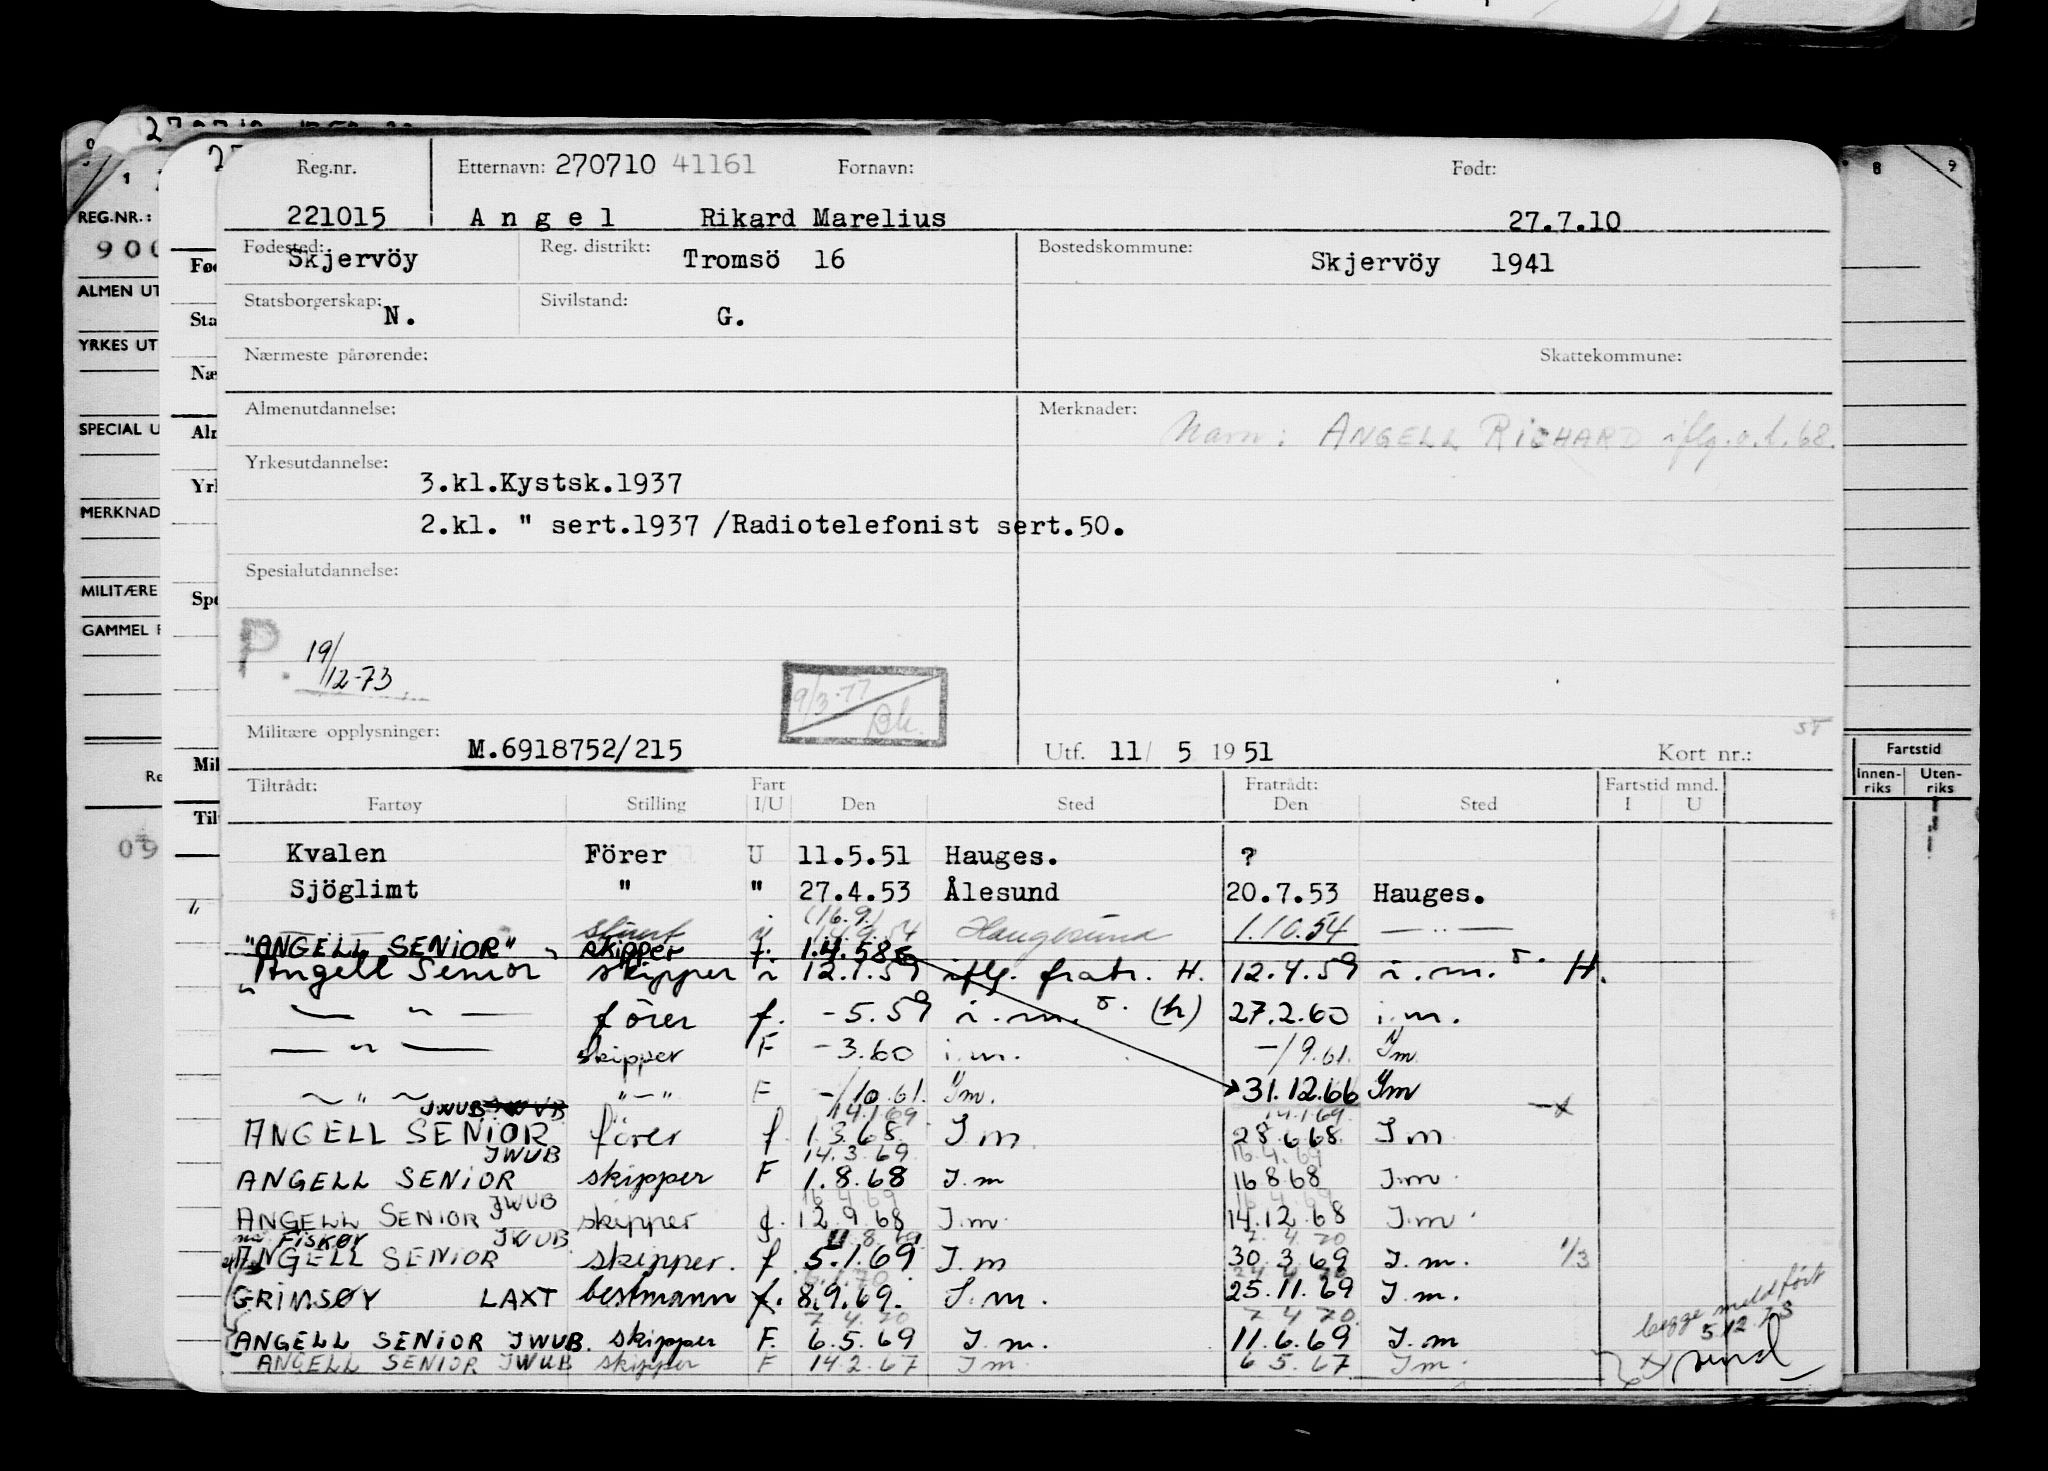 Reg.nr. Etternavn: 270710 41161 Fornavn: Født:
221015 A n g e l Rikard Marelius 27.7.10
Fødested: Skjervöy Reg. distrikt: Tromsö 16 Bostedskommune: Skjervöy 1941
Statsborgerskap: N. Sivilstand: G.
Nærmeste pårørende: Skattekommune:
Almenutdannelse: Merknader: Navn: ANGELL RICHARD iflg. o.l. 68.
Yrkesutdannelse:
3.kl.Kystsk.1937
2.kl. " sert.1937 /Radiotelefonist sert.50.
Spesialutdannelse:
P. 19/12-73
9/3-77 Bk.
Militære opplysninger: M.6918752/215 Utf. 11/ 5 1951 Kort nr.:
Tiltrådt: Fart Fratrådt: Fartstid mnd.
Fartøy Stilling I/U Den Sted Den Sted I U
Kvalen Förer U 11.5.51 Hauges. ?
Sjöglimt " " 27.4.53 Ålesund 20.7.53 Hauges.
(16.9.) Haugesund 1.10.54 — " —
"ANGELL SENIOR" skipper f. 1.4.58
Angell Senior skipper i 12.1.59 iflg. fratr. H. 12.4.59 i.m. H.
— " — förer f. -5.59 i.m. (h) 27.2.60 i.m.
— " — skipper F -3.60 i.m. -/9.61. Im
— " — " — " F -/10.61. Im. 31.12.66 Im
JWUB 14.1.69 14.1.69
ANGELL SENIOR förer f. 1.3.68 I m 28.6.68 I m
JWUB 14.3.69 16.4.69
ANGELL SENIOR skipper F 1.8.68 I.m 16 8 68 I.m
JWUB 16.4.69
ANGELL SENIOR skipper f. 12.9.68 I.m 14.12.68 I.m
nå FISKØY JWUB 7.4.70
ANGELL SENIOR skipper. f 5.1.69 I.m 30.3.69 I.m. 1/3
GRIMSØY LAXT bestmann f. 8.9.69. I.m. 25.11.69 I.m.
7 4 70 7 4 70
ANGELL SENIOR JWUB. skipper F. 6.5.69 I.m. 11.6.69 I.m
ANGELL SENIOR JWUB skipper F 14.2.67 I m 6 5.67 I m
begge meld ført
5.12.73
REG.NR.:
900
ALMEN UT
YRKES UT
SPECIAL U
MERKNAD
MILITÆRE
GAMMEL F
Fød
Sta
Næ
Alr
Yrl
Spe
Mil
Til
Re
09
8 9
Fartstid
Innen-riks Uten-riks